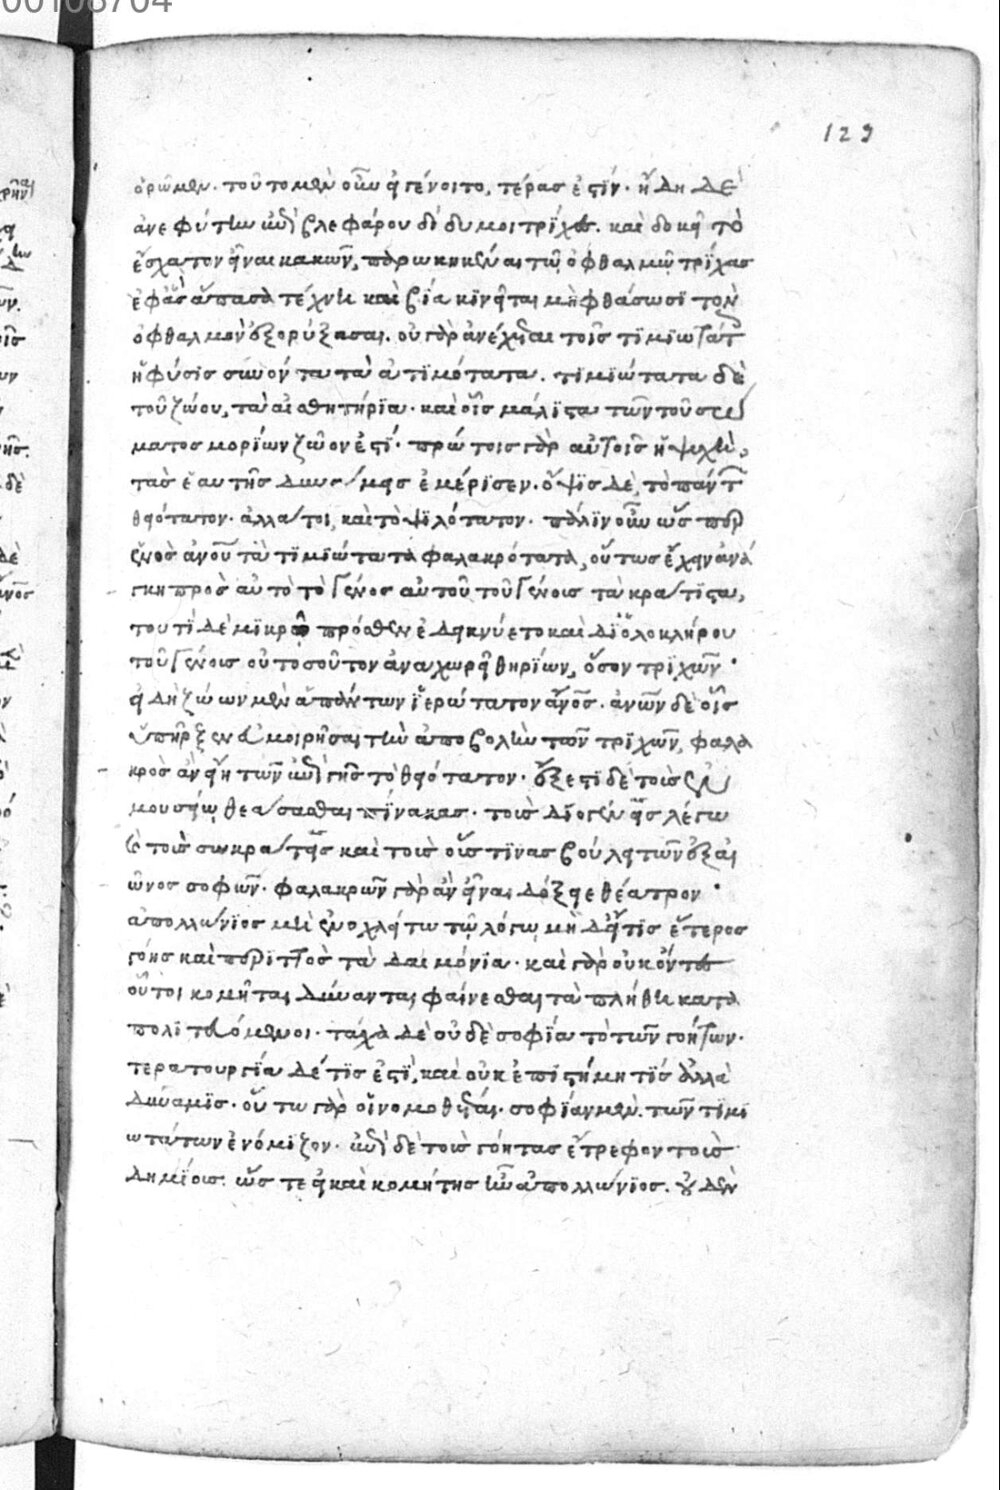 00108704
129
ὁρῶμεν. τοῦτο μὲν οὖν εἰ γένοιτο, τέρας ἐστίν. ἤδη δὲ
ἀνεφύτην ἐπὶ βλεφάρου δίδυμοι τρίχες. καὶ δοκεῖ τὸ
ἔσχατον εἶναι κακῶν, παρῳκηκέναι τῷ ὀφθαλμῷ τρίχας
ἐφ' ἃς ἅπασα τέχνη καὶ βία κινεῖται μὴ φθάσωσι τὸν
ὀφθαλμὸν ἐξορύξασαι. οὐ γὰρ ἀνέχεται τοῖς τιμιωτάτ
ἡ φύσις συνόντα τὰ ἀτιμότατα. τιμιώτατα δὲ
τοῦ ζώου, τὰ αἰσθητήρια. καὶ οἷς μάλιστα τῶν τοῦ σώ
ματος μορίων ζῷόν ἐστί. πρώτοις γὰρ αὐτοῖς ἡ ψυχὴ,
τὰς ἑαυτῆς δυνάμεις ἐμέρισεν. ὄψις δὲ, τὸ πάντ
θειότατον. ἀλλά τοι, καὶ τὸ ψιλότατον. πάλιν οὖν ὡς παρ
ἑνὸς ἀνοῦ τὰ τιμιώτατα φαλακρότατα, οὕτως ἔχειν ἀνά
γκη πρὸς αὐτὸ τὸ γένος αὐτοῦ τοῦ γένοις τὰ κράτιστα,
τουτὶ δὲ μικρῷ πρόσθεν ἐδείκνυέ το καὶ δι' ὁλοκλήρου
τοῦ γένοις οὐ τοσοῦτον ἀναχωρεῖ θηρίων, ὅσον τριχῶν.
εἰ δὴ ζώων μὲν ἁπάντων ἱερώτατον ἄνος. ἀνων δὲ οἷς
ὑπῆρξεν εὐμοιρῆσαι τὴν ἀποβολὴν τῶν τριχῶν, φαλα
κρὸς ἂν εἴη τῶν ἐπὶ γῆς τὸ θειότατον. ἔξεστι δὲ τοὺς ἐν
μουσείῳ θεάσασθαι πίνακας. τοὺς διογένεις λέγω
καὶ τοὺς σωκράτεις καὶ τοὺς οὕς τινας βούλει τῶν ἐξ αἰ
ῶνος σοφῶν. φαλακρῶν γὰρ ἂν εἶναι δόξειε θέατρον.
ἀπολλώνιος μὴ ἐνοχλείτω τῷ λόγῳ μὴ δ' εἴ τις ἕτερος
γόης καὶ περιττὸς τὰ δαιμόνια. καὶ γὰρ οὐκ ὄντες
οὗτοι κομῆται δύνανται φαίνεσθαι τὰ πλήθη κατα
πολιτευόμενοι. τάχα δὲ οὐδὲ σοφία τὸ τῶν γοήτων.
τερατουργία δέ τις ἐστὶ, καὶ οὐκ ἐπιστήμη τίς ἀλλὰ
δύναμις. οὕτω γὰρ οἱ νομοθέται. σοφίαν μὲν τῶν τιμι
ωτάτων ἐνόμιζον. ἐπὶ δὲ τοὺς γόητας ἔτρεφον τοὺς
δημίοις. ὥς τε εἰ καὶ κομήτης ἦν ἀπολλώνιος. οὐδὲν